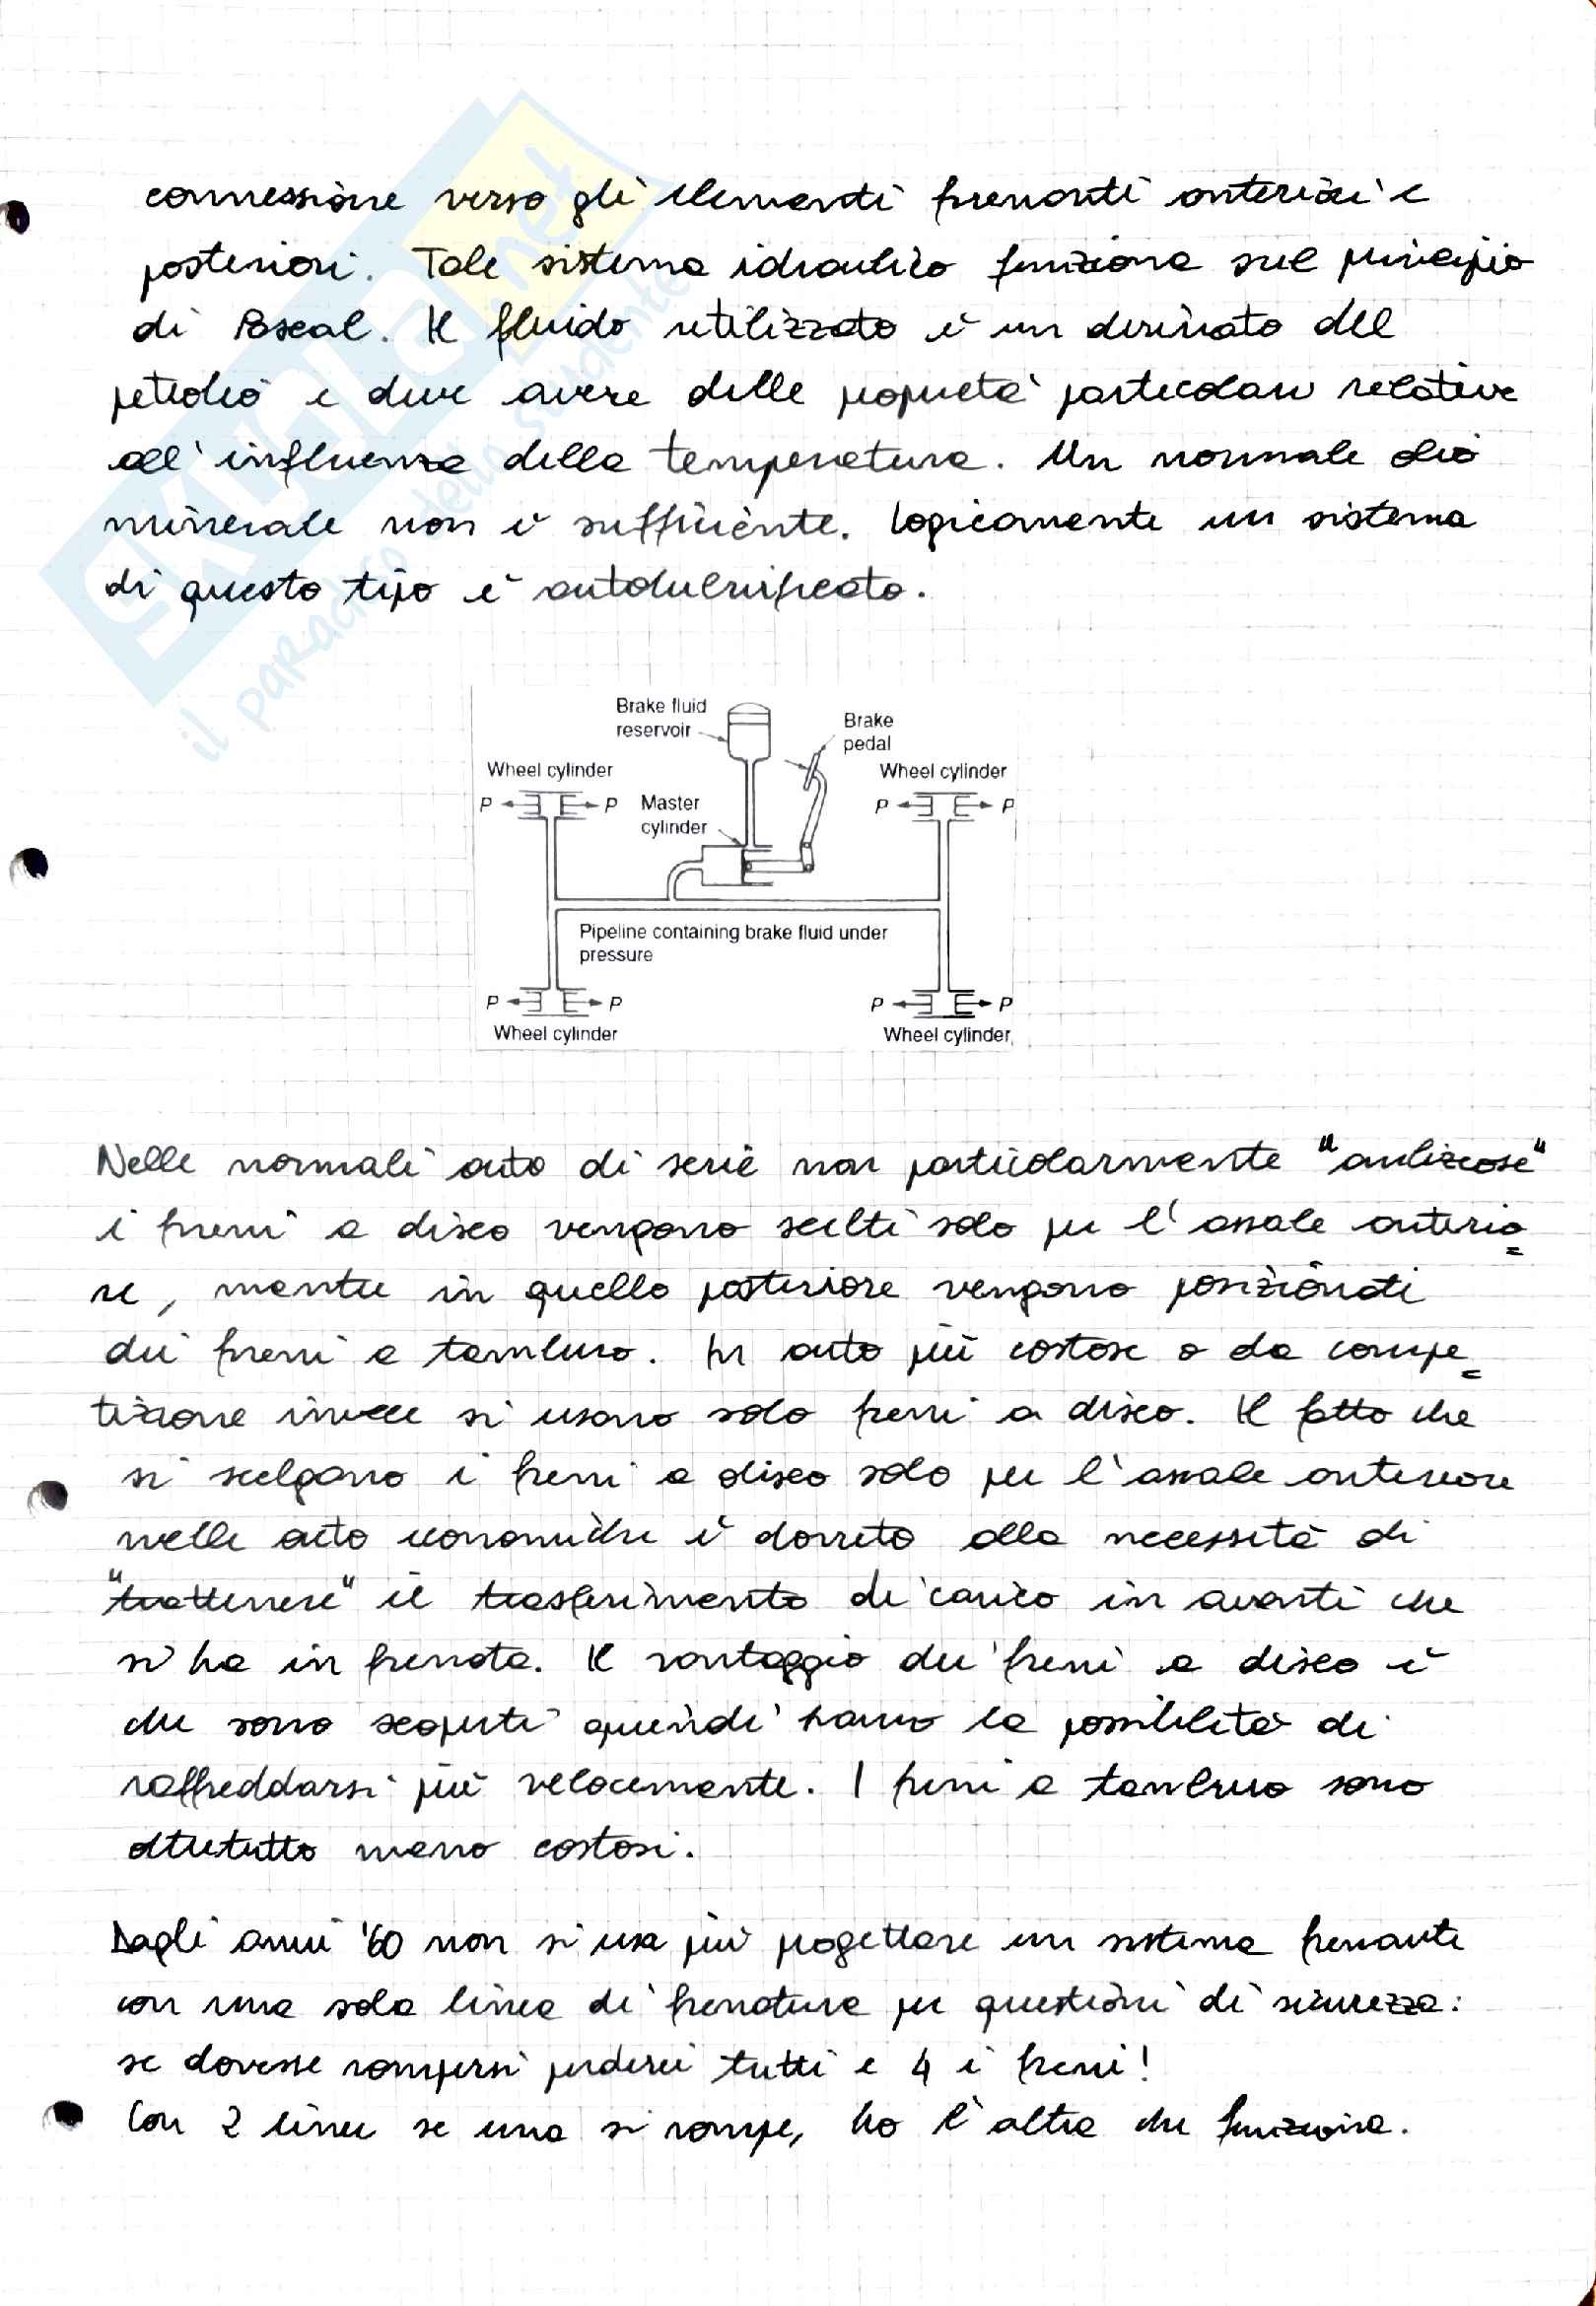 connessione verso gli elementi frenanti anteriori e
posteriori. Tale sistema idraulico funziona sul principio
di Pascal. Il fluido utilizzato è un derivato del
petrolio e deve avere delle proprietà particolari relative
all'influenza della temperatura. Un normale olio
minerale non è sufficiente. Logicamente un sistema
di questo tipo è autolubrificato.
SKUOLA.net
il paradiso dello studente
Brake fluid
reservoir
Brake
pedal
Wheel cylinder
Wheel cylinder
P P Master
cylinder
P P
Pipeline containing brake fluid under
pressure
P P
P P
Wheel cylinder
Wheel cylinder
Nelle normali auto di serie non particolarmente "ambiziose"
i freni a disco vengono scelti solo per l'assale anterio
re, mentre in quello posteriore vengono posizionati
dei freni a tamburo. In auto più costose o da compe
tizione invece si usano solo freni a disco. Il fatto che
si scelgano i freni a disco solo per l'assale anteriore
nelle auto economiche è dovuto alla necessità di
"trattenere" il trasferimento di carico in avanti che
si ha in frenata. Il vantaggio dei freni a disco è
che sono scoperti quindi hanno la possibilità di
raffreddarsi più velocemente. I freni a tamburo sono
oltretutto meno costosi.
Dagli anni '60 non si usa più progettare un sistema frenante
con una sola linea di frenatura per questioni di sicurezza:
se dovesse rompersi perderei tutti e 4 i freni!
Con 2 linee se una si rompe, ho l'altra che funziona.